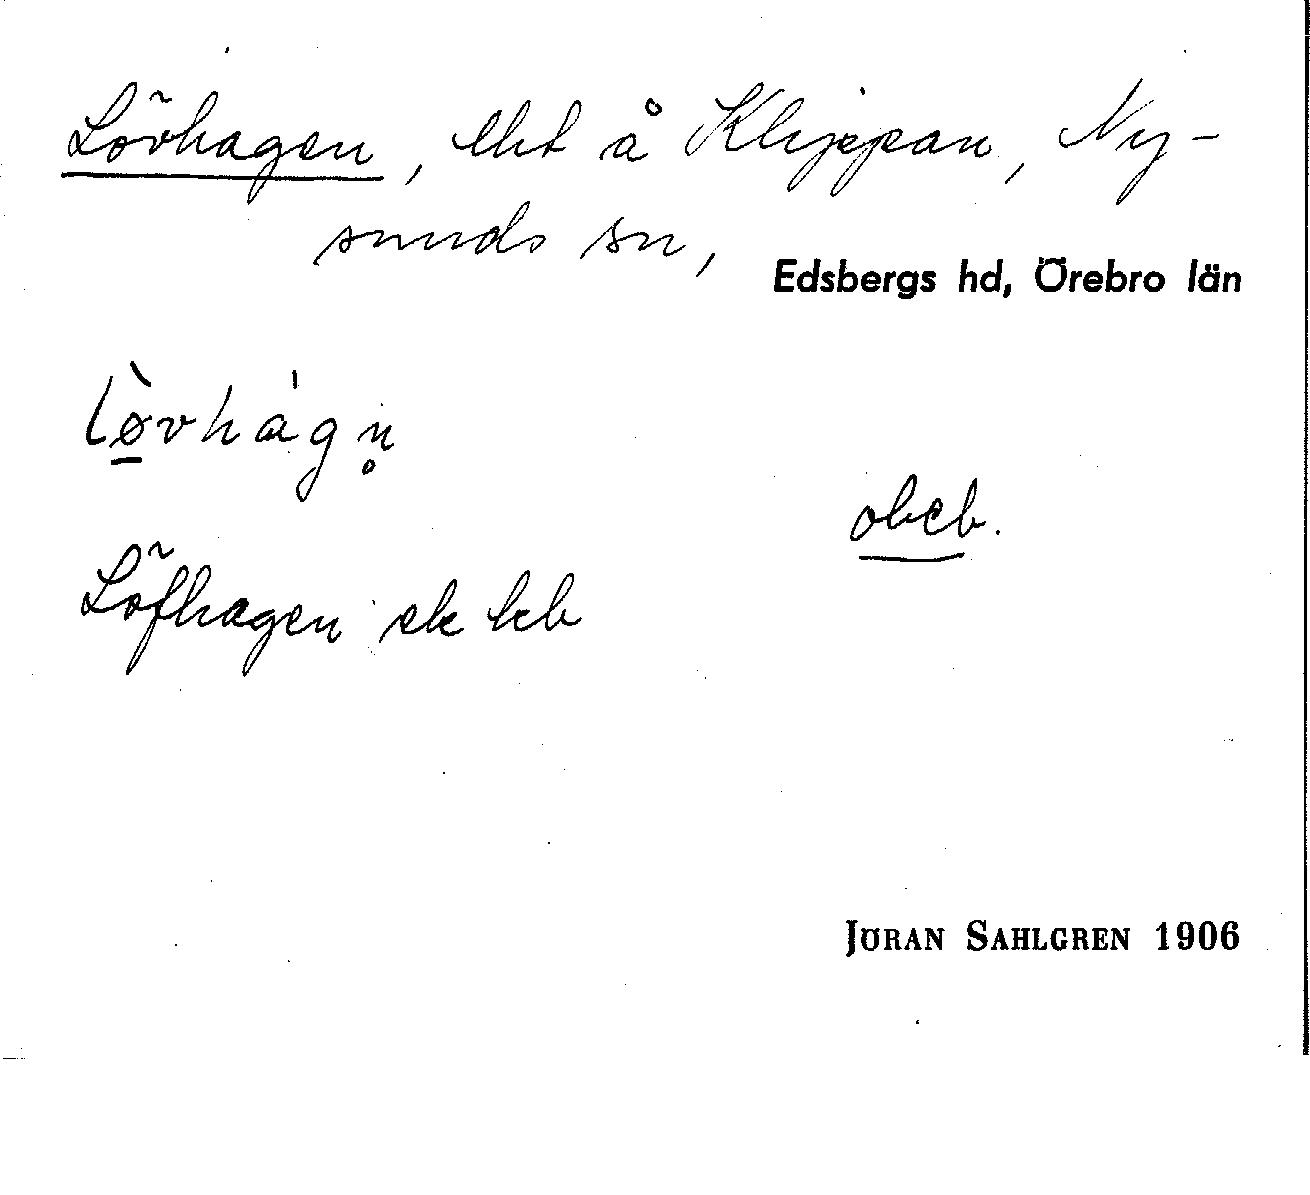 Lövhagen, lht å Klippan, Ny-
sunds sn,
Edsbergs hd, Örebro län
lø̀vhágn̥
obeb.
Löfhagen ek kb
JÖRAN SAHLGREN 1906